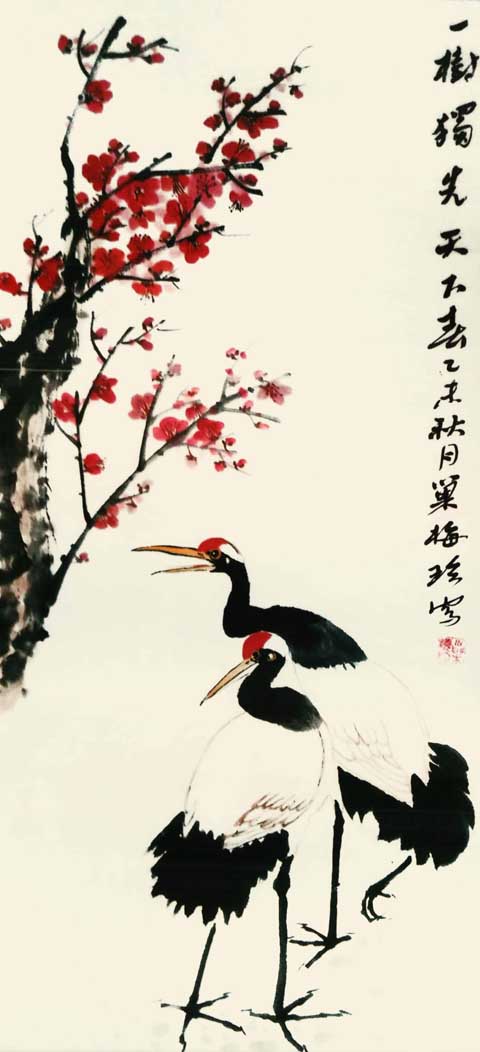 一樹獨先天下春乙未秋月巢梅珍寫